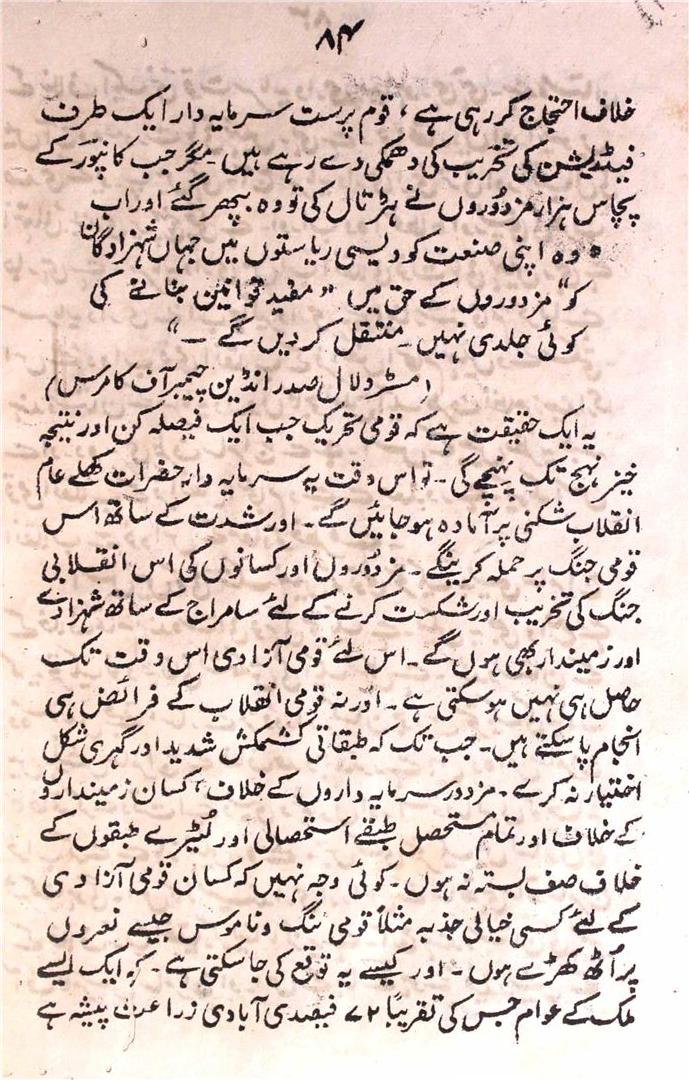 ۸۴
خلاف احتجاج کر رہی ہے ، قوم پرست سرمایہ دار ایک طرف
فیڈریشن کی تخریب کی دھمکی دے رہے ہیں ۔ مگر جب کانپور کے
پچاس ہزار مزدوروں نے ہڑتال کی تو وہ بپھر گئے اور اب
" وہ اپنی صنعت کو دیسی ریاستوں میں جہاں شہزادگان
کو" مزدوروں کے حق میں " مفید قوانین بنانے کی
کوئی جلدی نہیں ۔ منتقل کر دیں گے ۔ "
(مسٹر دلال صدر انڈین چیمبر آف کامرس)
یہ ایک حقیقت ہے کہ قومی تحریک جب ایک فیصلہ کن اور نتیجہ
خیز نہج تک پہنچے گی ۔ تو اس وقت یہ سرمایہ دار حضرات کھلے عام
انقلاب شکنی پر آمادہ ہو جائیں گے ۔ اور شدت کے ساتھ اس
قومی جنگ پر حملہ کرینگے ۔ مزدوروں اور کسانوں کی اس انقلابی
جنگ کی تخریب اور شکست کرنے کے لئے سامراج کے ساتھ شہزادے
اور زمیندار بھی ہوں گے ۔ اس لئے قومی آزادی اس وقت تک
حاصل ہی نہیں ہو سکتی ہے ۔ اور نہ قومی انقلاب کے فرائض ہی
انجام پا سکتے ہیں ۔ جب تک کہ طبقاتی کشمکش شدید اور گہری شکل
اختیار نہ کرے ۔ مزدور سرمایہ داروں کے خلاف ، کسان زمینداروں
کے خلاف اور تمام مستحصل طبقے استحصالی اور لٹیرے طبقوں کے
خلاف صف بستہ نہ ہوں ۔ کوئی وجہ نہیں کہ کسان قومی آزادی
کے لئے کسی خیالی جذبہ مثلاً قومی ننگ و ناموس جیسے نعروں
پر اُٹھ کھڑے ہوں ۔ اور کیسے یہ توقع کی جا سکتی ہے ۔ کہ ایک ایسے
ملک کے عوام جس کی تقریباً ۷۲ فیصدی آبادی زراعت پیشہ ہے